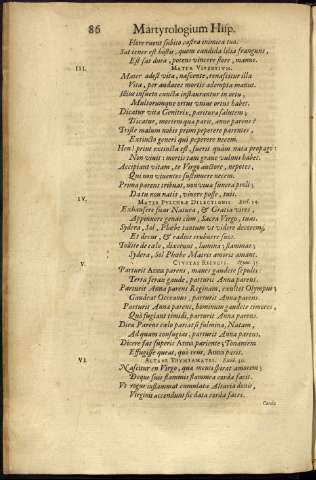 86 Martyrologium Hisp.
Flore ruent subito castra inimica tuo.
Sat tener est hostis, quem candida lilia frangunt,
Est sat dura, potens vincere flore, manus.
III. MATER VIVENTIVM.
Mater adest vita, nascente, renascitur illa
Vita, per audaces mortis adempta manus.
Illius insueto cuncta instaurantur in ortu,
Multorumque ortus unius ortus habet.
Dicatur vita Genitrix, paritura salutem;
Dicatur, mortem qua parit, anne parens?
Triste malum nobis primi peperere parentes,
Extincto generi qui peperere necem.
Heu! prius extincta est, fuerit quàm nata propago:
Non vixit: mortis tam grave vulnus habet.
Accipiunt vitam, te Virgo auctore, nepotes,
Qui non viventes sustinuere necem.
Prima parens tribuat, non viva funera proli;
Da tu non natis, vivere posse, tuis.
IV. MATER PVLCHRÆ DILECTIONIS.
Exhausere suas Natura, & Gratia vires,
Appendere genas cùm, Sacra Virgo, tuas.
Sydera, Sol, Phœbe tantum ut videre decorem,
Et decus, & radios erubuere suos.
Tollite de cælo, dixerunt, lumina; flammas;
Sydera, Sol Phœbe Matris amoris amant.
V. CIVITAS REFVGII.
Parturit Anna parens, manes gaudete sepulti
Terra ferax gaude, parturit Anna parens.
Parturit Anna parens Reginam, exultet Olympus;
Gaudeat Oceanus, parturit Anna parens.
Parturit Anna parens, hominum gaudete ruinæ,
Quò fugiant timidi, parturit Anna parens.
Diva Parens cælo pariat si fulmina, Natam,
Ad quam confugias, parturit Anna parens.
Dicere fas superis Anna pariente; Tonantem
Effugisse queat, quo reus, Anna parit.
VI. ALTARE THYMIAMATIS.
Nascitur en Virgo, qua mentis spirat amorem;
Deque suis flammis flammea corda facit.
Ut rogus inflammat cumulata Altaria donis,
Virginis accendunt sic data corda faces.
Corda